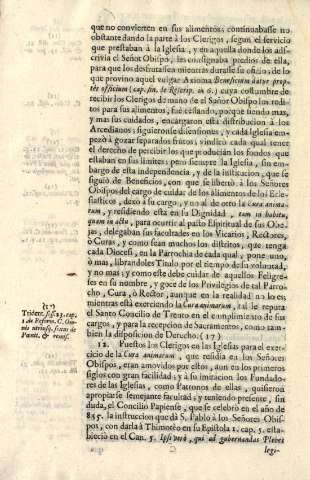 que no convierten en sus alimentos; continuabasse no
obstante dando la parte à los Clerigos, segun el servicio
que prestaban à la Iglesia, y en aquella donde los ads-
crivia el Señor Obispo, les consignaba predios de ella,
para que los desfrutassen mientras durasse su oficio; de lo
que provino aquel vulgar Axioma Beneficium datur prop-
ter officium (cap. fin. de Rescrip. in 6.) cuya costumbre de
recibir los Clerigos de mano de el Señor Obispo los redi-
tos para sus alimentos, fuè cesando, porque siendo mas,
y mas sus cuidados, encargaron esta distribucion à los
Arcedianos; siguieronse disensiones, y cada Iglesia em-
pezò à gozar separados fincos, vindicò cada qual tener
el derecho de percibir los que producian los fondos que
estaban en sus limites; pero siempre la Iglesia, sin em-
bargo de esta independencia, y de la institucion, que se
siguiò de Beneficios, con que se libertò à los Señores
Obispos del cargo de cuidar de los alimentos de los Ecle-
siasticos, dexò à su cargo, y no al de otro la cura anima-
rum, y residiendo esta en su Dignidad, tam in habitu,
quam in actu, para ocurrir al pasto Espiritual de sus Obe-
jas, delegaban sus facultades en los Vicarios, Rectores,
ò Curas, y como sean muchos los distritos, que tenga
cada Diocesi, en la Parrochia de cada qual, pone uno,
ò mas, librandoles Titulo por el tiempo de su voluntad,
y no mas; y como este debe cuidar de aquellos Feligre-
ses en su nombre, y goce de los Privilegios de tal Parro-
cho, Cura, ò Rector, aunque en la realidad no lo es;
mientras està exerciendo la Cura animarum, tal le reputa
el Santo Concilio de Trento en el cumplimiento de sus
cargos, y para la recepcion de Sacramentos, como tam-
bien la disposicion de Derecho. (17)
(17)
Trident. sess. 23. cap.
1. de Reform. C. Om-
nis utriusq. sexus de
Pœnit. & remis.
12. Puestos los Clerigos en las Iglesias para el exer-
cicio de la Cura animarum, que residia en los Señores
Obispos, eran amovidos por estos, aun en los primeros
siglos con gran facilidad; y à su imitacion los Fundado-
res de las Iglesias, como Patronos de ellas, quisieron
apropiarse semejante facultad; y teniendo presente, sin
duda, el Concilio Papiense, que se celebrò en el año de
855. la instruccion que dà S. Pablo à los Señores Obis-
pos, con darla à Thimotèo en su Epistola 1. cap. 5. esta-
bleciò en el Can. 5. Ipsi verò, qui ad gubernandas Plebes
legi-